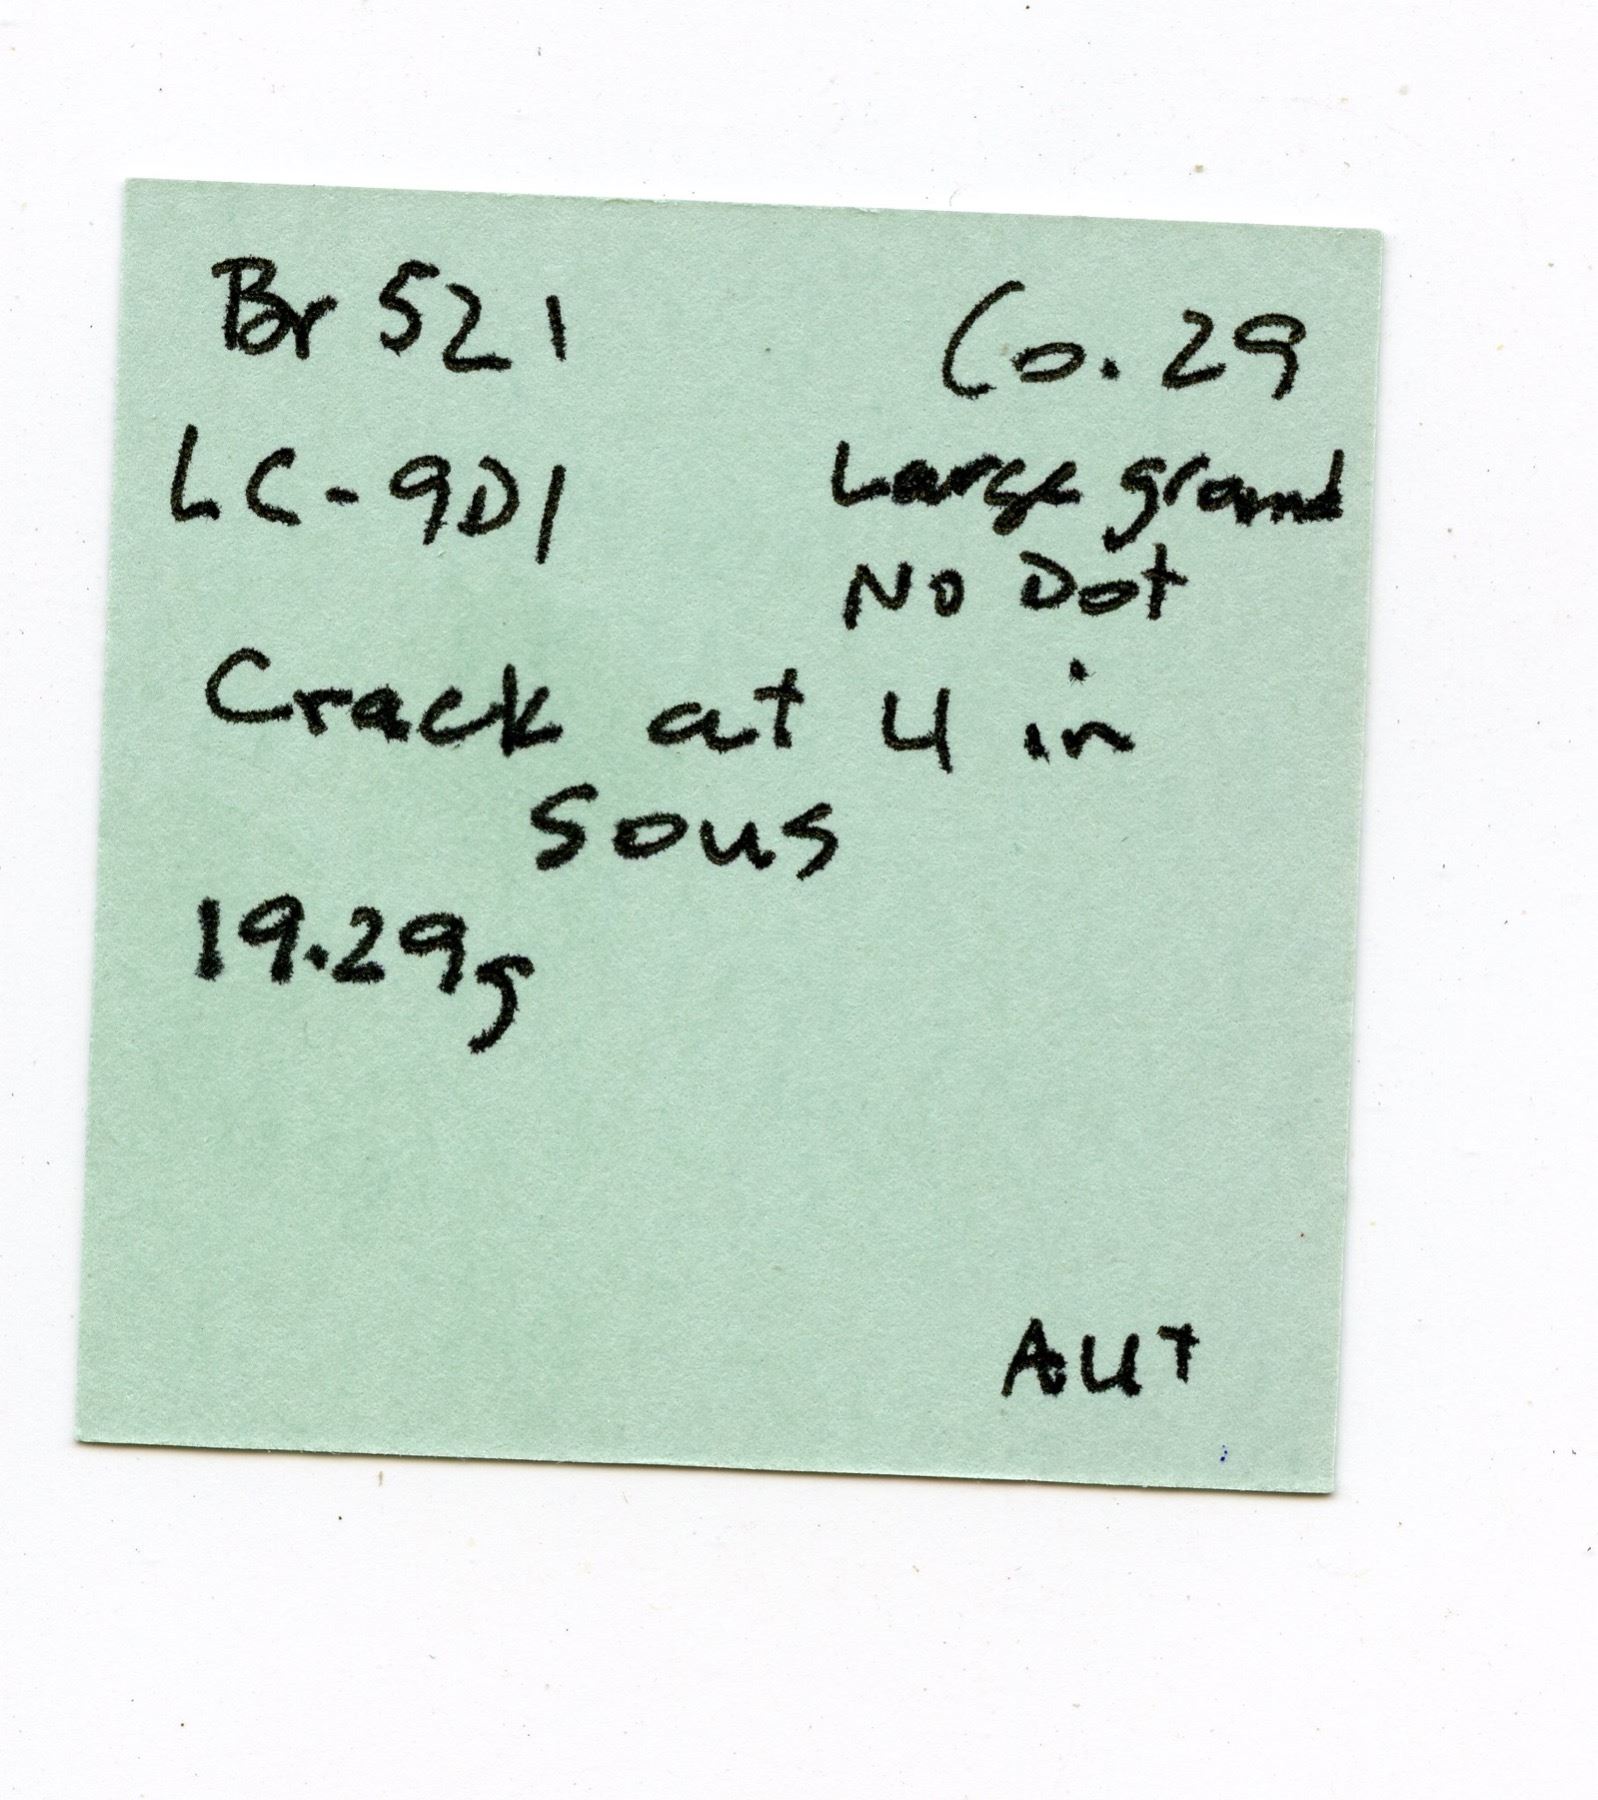 Br 521
LC-9D1
Co. 29
Large ground
No Dot
Crack at U in
Sous
19.29g
AU+